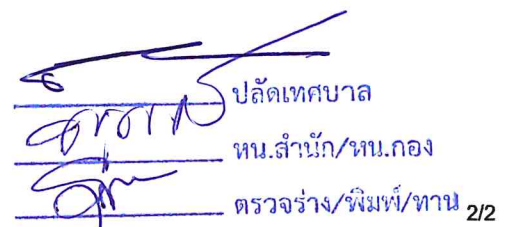 ปลัดเทศบาล
หน.สำนัก/หน.กอง
ตรวจร่าง/พิมพ์/ทาน 2/2